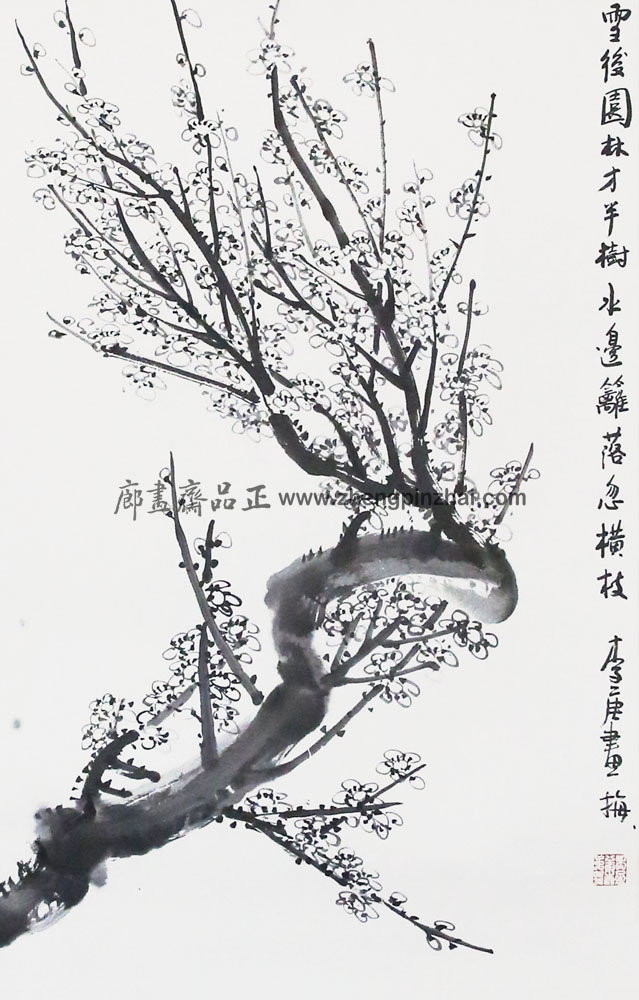 雪後園林才半樹水邊籬落忽橫枝
李庚畫梅
廊畫齋品正 www.zhengpinzhai.com